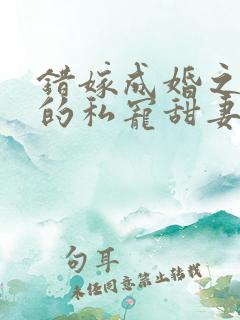 错嫁成婚之
的私宠甜妻
句耳
未经同意禁止转载